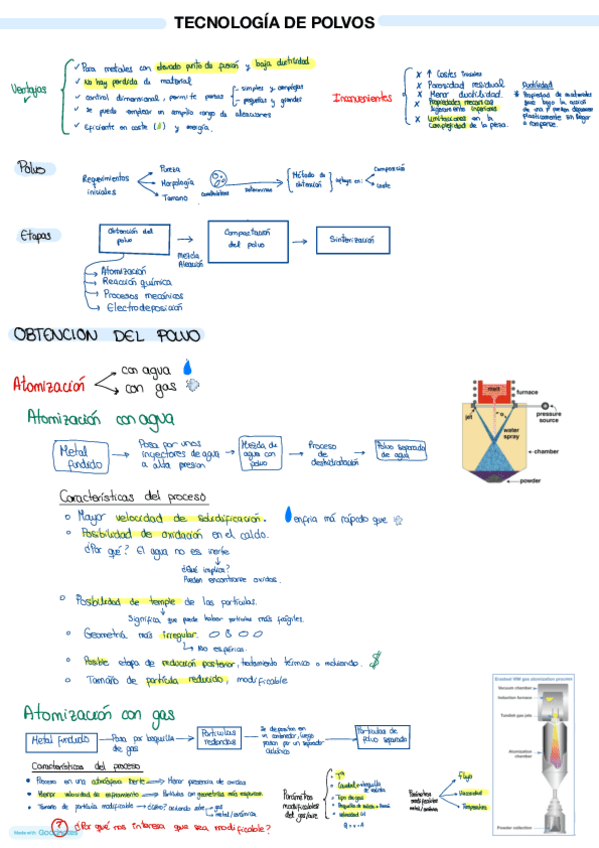 TECNOLOGÍA DE POLVOS
Ventajas
✓ Para metales con elevado punto de fusión y baja ductilidad
✓ No hay perdida de material
✓ control dimensional, permite piezas
- simples y complejas
- pequeñas y grandes
✓ se puede emplear un amplio rango de aleaciones
✓ Eficiente en coste y energía.
Inconvenientes
X ↑ Costes
X Porosidad residual
X Menor ductilidad.
X Propiedades mecánicas ligeramente inferiores
X Limitaciones en la complejidad de la pieza.
Ductilidad
Propiedad de materiales
que bajo la acción
de una F pueden deformarse
plásticamente sin llegar
a romperse.
Polvo
Requerimientos iniciales
Pureza
Morfología
Tamaño
determinan
Método de obtención
influye en:
Composición
coste
Etapas
Obtención del polvo
mezcla
Aleación
Compactación del polvo
Sinterización
Atomización
Reacción química
Procesos mecánicos
Electrodeposición
OBTENCION DEL POLVO
Atomización
con agua
con gas
Atomización con agua
Metal fundido
Pasa por unos
inyectores de agua
a alta presion
Mezcla de agua con polvo
Proceso de deshidratación
Polvo separado de agua
melt
furnace
jet
pressure source
water spray
chamber
powder
Características del proceso
Mayor velocidad de solidificación.
enfria más rápido que
Posibilidad de oxidación en el caldo.
¿Por qué? El agua no es inerte
¿Qué implica?
Pueden encontrarse oxidos.
Posibilidad de temple de las partículas.
Significa que puede haber partículas más frágiles.
Geometría más irregular.
No esféricas.
Posible etapa de reducción posterior, tratamiento térmico o molienda. $
Tamaño de partícula reducido, modificable
Atomización con gas
Metal fundido
Pasa por boquilla de gas
Partículas redondas
Se depositan en
un contenedor, luego
pasan por un separador
ciclónico
Partículas de polvo separado
Características del proceso
Proceso en una atmósfera inerte → Menor presencia de oxidos
Menor velocidad de enfriamiento → Partículas con geometría más esférica
Tamaño de partícula modificable → ¿Cómo? actuando sobre
gas
metal/cerámica
? ¿Por qué nos interesa que sea modificable?
Parámetros modificables del gas/aire
Tª
Tipo de gas
Parámetros modificables metal/cerámica
Flujo
Viscosidad
Temperatura
Vacuum chamber
Induction furnace
Tundish gas jets
Atomization chamber
Powder collection
Made with Goodnotes